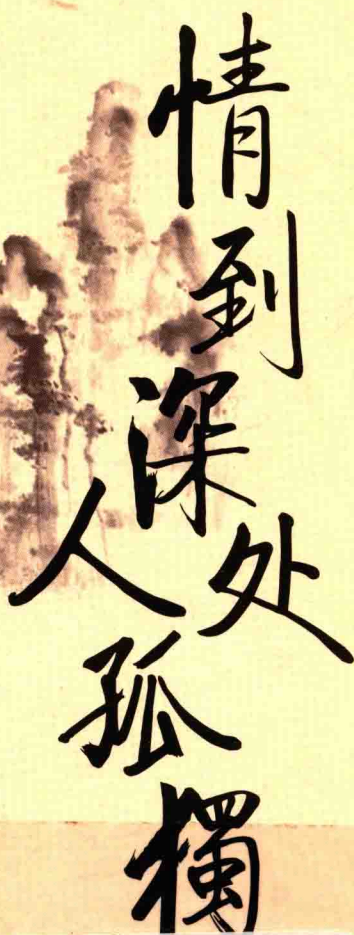 情到深处人孤獨